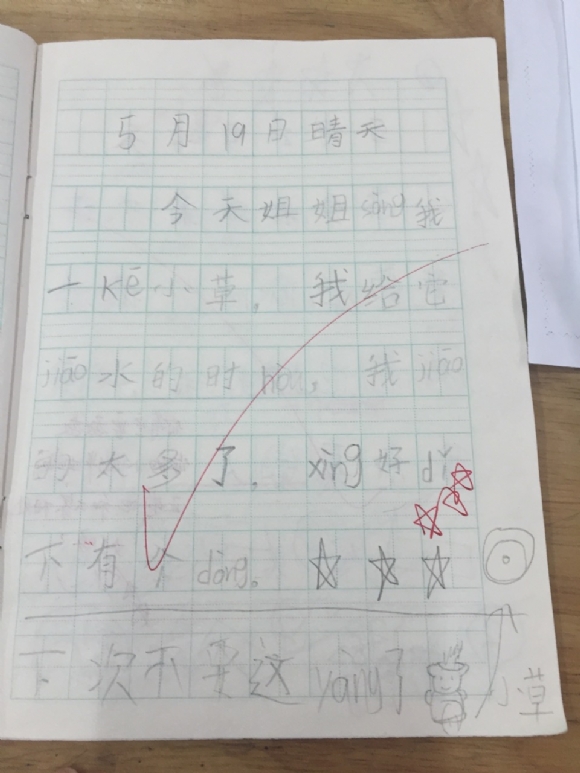 5月19日晴天
今天姐姐sòng我
一kē小草，我给它
jiāo水的时hòu，我jiāo
的太多了。xìng好dǐ
下有个dòng。
下次不要这yàng了
小草